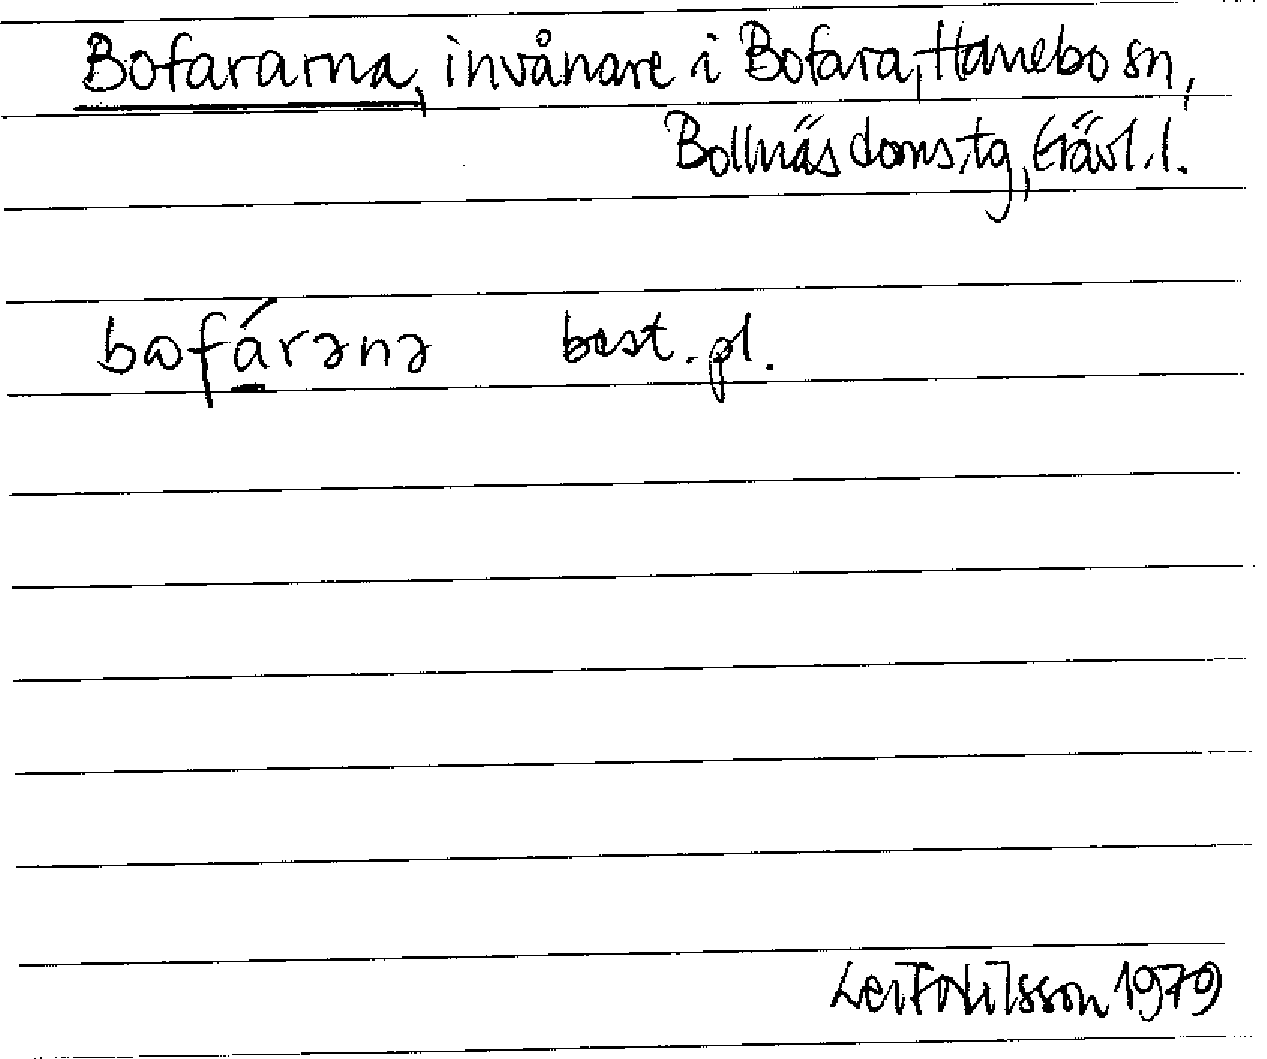 Bofararna, invånare i Bofara, Hanebo sn,
Bollnäs doms.tg, Gävl.l.
bɷfárənə best. pl.
Leif Nilsson 1979